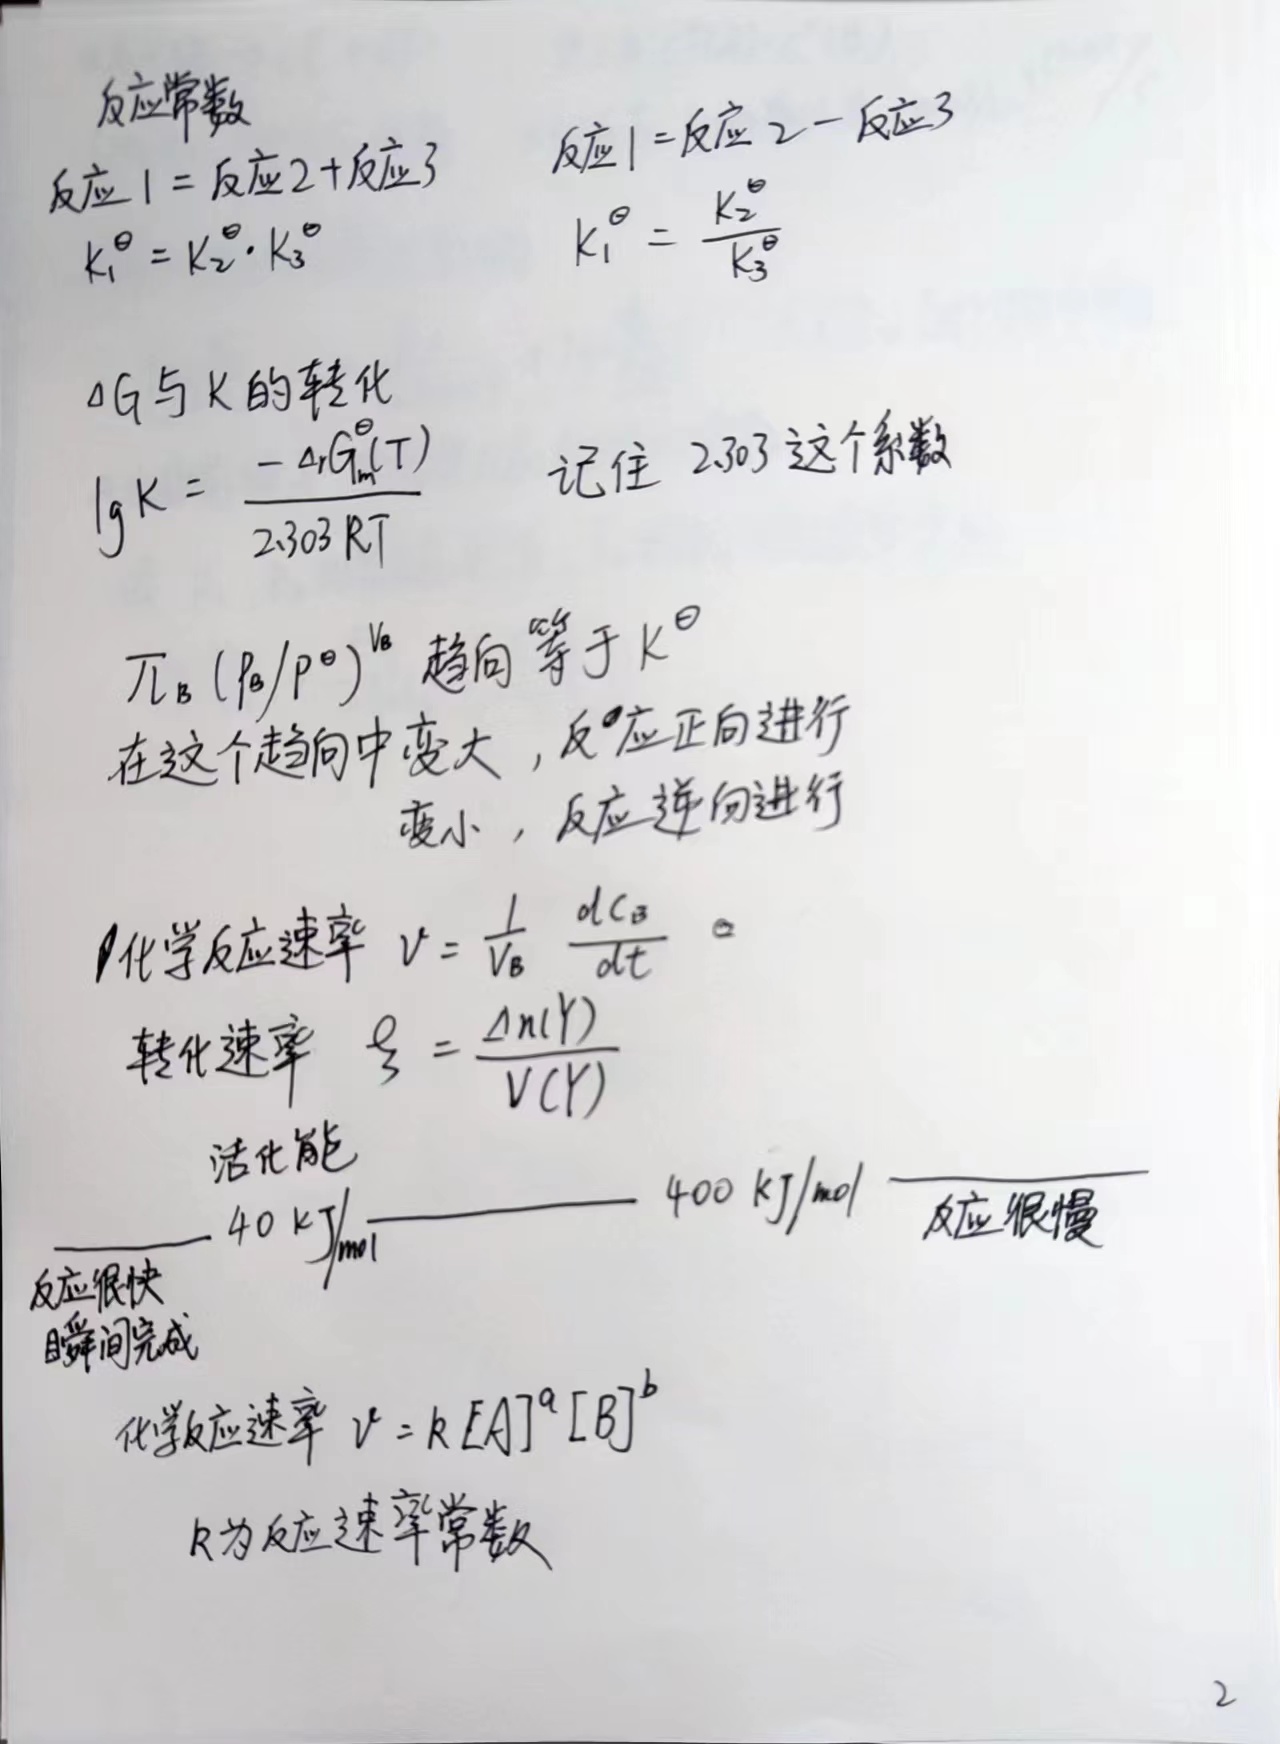 反应常数
反应1=反应2+反应3
K₁^θ = K₂^θ · K₃^θ
反应1=反应2-反应3
K₁^θ = K₂^θ / K₃^θ
ΔG与K的转化
lgK = -ΔrGm^θ(T) / 2.303RT
记住 2.303这个系数
π_B (P_B/P^θ)^(V_B) 趋向等于K^θ
在这个趋向中变大,反应正向进行
变小,反应逆向进行
化学反应速率 v = 1/V_B dC_B/dt
转化速率 ξ = Δn(Y) / V(Y)
活化能
40 KJ/mol
400 KJ/mol
反应很慢
反应很快
瞬间完成
化学反应速率 v = k[A]^a[B]^b
k为反应速率常数
2